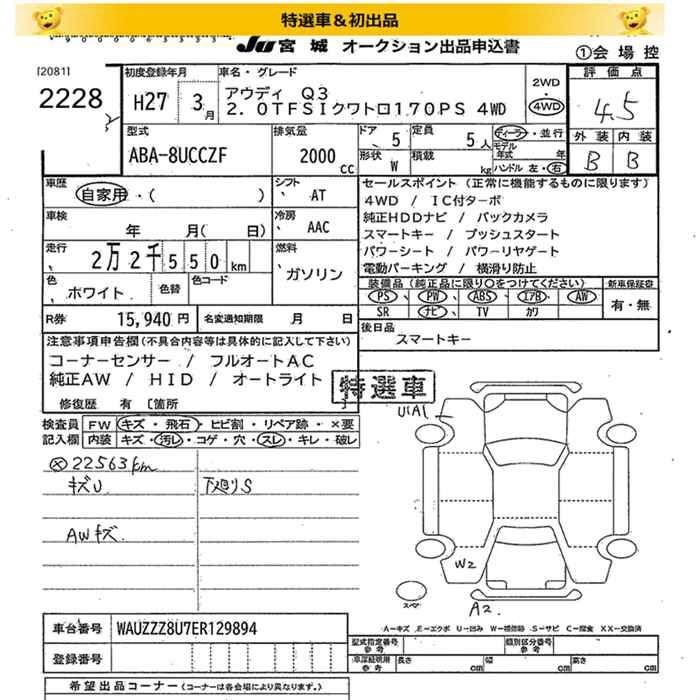 特選車＆初出品
JU 宮城 オークション出品申込書
①会場控
[2081]
2228
初度登録年月
H27 3月
車名・グレード
アウディ Q3
2.0TFSIクワトロ170PS 4WD
2WD
・
4WD
評価点
4.5
外装 内装
B B
型式
ABA-8UCCZF
排気量
2000 cc
ドア 5
定員 5人
形状 W
積載 kg
ディーラー・並行
モデル年式 年
ハンドル 左・右
車歴
自家用・( )
シフト
AT
車検
年 月( 日)
冷房
AAC
走行
2万2千550km
燃料
ガソリン
色
ホワイト
色替
色コード
R券 15,940円
名変通知期限 月 日
セールスポイント (正常に機能するものに限ります)
4WD / IC付ターボ
純正HDDナビ / バックカメラ
スマートキー / プッシュスタート
パワーシート / パワーリヤゲート
電動パーキング / 横滑り防止
装備品 (純正品に限り○をつけてください)
PS、PW、ABS、エアB、AW
SR ナビ、TV カワ
新車保証書
有・無
後日品
スマートキー
注意事項申告欄(不具合内容等は具体的に記入して下さい)
コーナーセンサー / フルオートAC
純正AW / HID / オートライト
修復歴 有 [箇所
特選車
検査員記入欄
FW キズ・飛石・ヒビ割・リペア跡・×要
内装 キズ・汚レ・コゲ・穴・スレ・キレ・破レ
22563km
キズU 下廻りS
AWキズ.
U1A1
W2
A2
スペア
A=キズ E=エクボ U=凹み W=補修跡 S=サビ C=腐食 XX=交換済
車台番号 WAUZZZ8U7ER129894
登録番号
型式指定番号 参考
類別区分番号 参考
車庫証明用 参考 長さ cm 幅 cm 高さ cm
希望出品コーナー(コーナーは各会場により異なります)